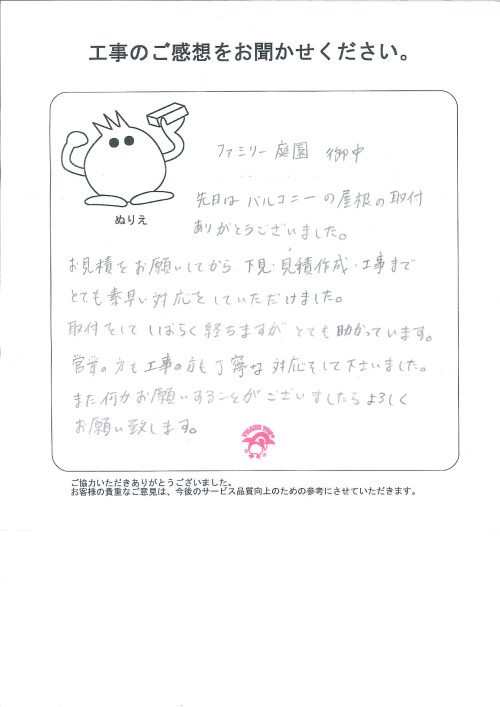 工事のご感想をお聞かせください。
ぬりえ
ファミリー庭園 御中
先日は バルコニーの屋根の取付
ありがとうございました。
お見積をお願いしてから、下見・見積作成・工事まで
とても素早い対応をしていただけました。
取付をして しばらく経ちますが とても助かっています。
営業の方も工事の方も丁寧な対応をして下さいました。
また何かお願いすることがございましたらよろしく
お願い致します。
THANK YOU
ご協力いただきありがとうございました。
お客様の貴重なご意見は、今後のサービス品質向上のための参考にさせていただきます。